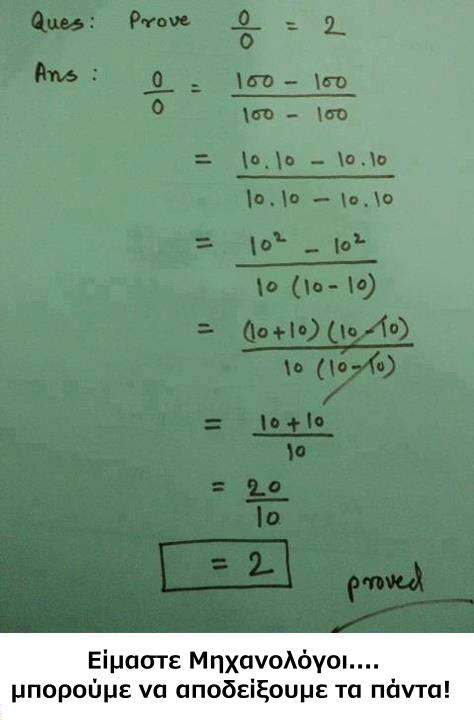 Ques: Prove 0/0 = 2
Ans: 0/0 = (100 - 100)/(100 - 100)
= (10.10 - 10.10)/(10.10 - 10.10)
= (10² - 10²)/(10 (10 - 10))
= ((10+10) (10-10))/(10 (10-10))
= (10 + 10)/10
= 20/10
= 2
proved
Είμαστε Μηχανολόγοι....
μπορούμε να αποδείξουμε τα πάντα!